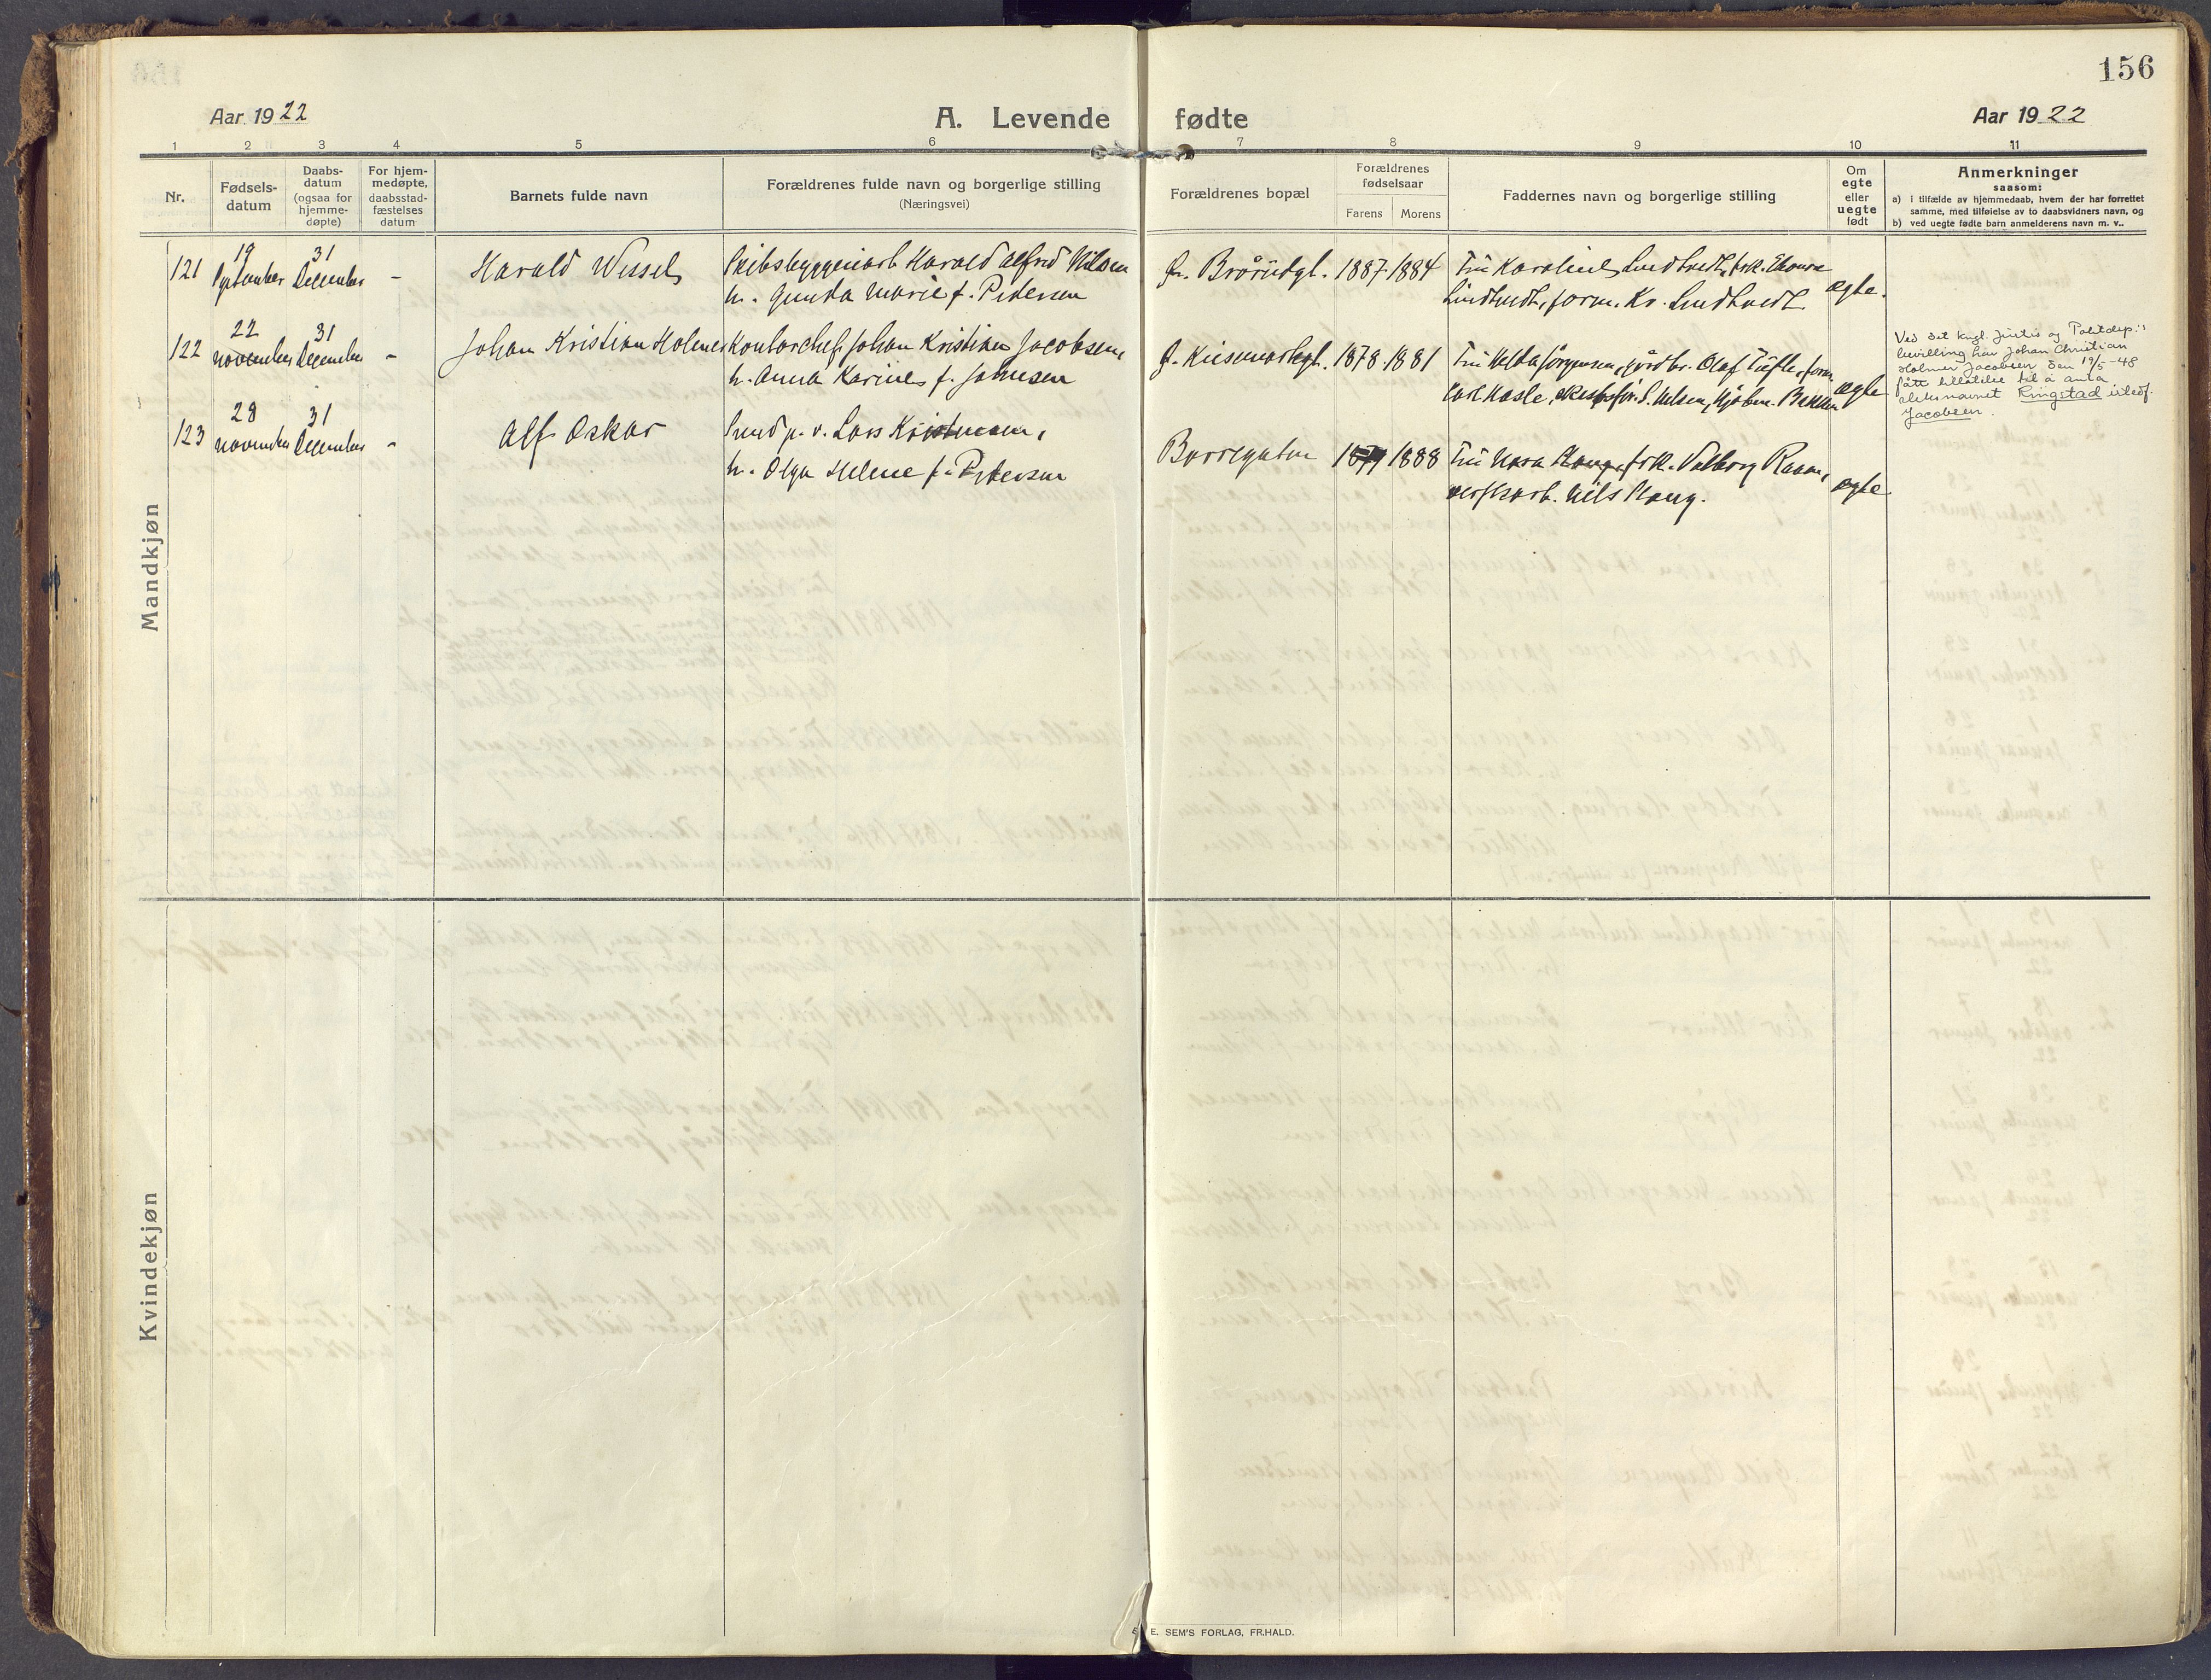 156
Aar 1922
A. Levende fødte
Aar 1922
1 2 3 4 5 6 7 8 9 10 11
Nr.
Fødsels-
datum
Daabs-
datum
(ogsaa for
hjemme-
døpte)
For hjem-
medøpte,
daabsstad-
fæstelses
datum
Barnets fulde navn
Forældrenes fulde navn og borgerlige stilling
(Næringsvei)
Forældrenes bopæl
Forældrenes
fødselsaar
Farens Morens
Faddernes navn og borgerlige stilling
Om
egte
eller
uegte
født
Anmerkninger
saasom:
a) i tilfælde av hjemmedaab, hvem der har forrettet
samme, med tilføielse av to daabsvidners navn, og
b) ved uegte fødte barn anmelderens navn m. v..
Mandkjøn
121
19
September
31
December
-
Harald Wessel
Skibsbyggeriarb Harald Alfred Nilsen
h. Gunda Marie f. Pedersen
1887 1884
Fru Karoline Lindtvedt, frk.
Lindtvedt, form. Kr. Lindtvedt
egte.
122
22
November
31
December
-
Johan Kristian Holmer
Kontorchef Johan Kristian Jacobsen,
h. Anna Karine f. Johnsen
1878 1881
Fru Helda Jörgensen, gårdbr. Olaf Tufte, form.
Karl Hasle, S. Nilsen, kjöbm. Bakken
egte
Ved det kngl. Justis og Politidep.'s
bevilling har Johan Christian
Holmer Jacobsen den 19/5-48
fått tillatelse til å anta
slektsnavnet Ringstad istedf.
Jacobsen.
123
28
November
31
December
-
Alf Oskar
Lars Kristensen,
h. Olga Helene f. Pedersen
Borregaten
1879 1888
Fru Nora Haug, frk. Valborg Raam,
verftsarb. Nils Haug.
egte
Kvindekjøn
E. SEM'S FORLAG, FR.HALD.